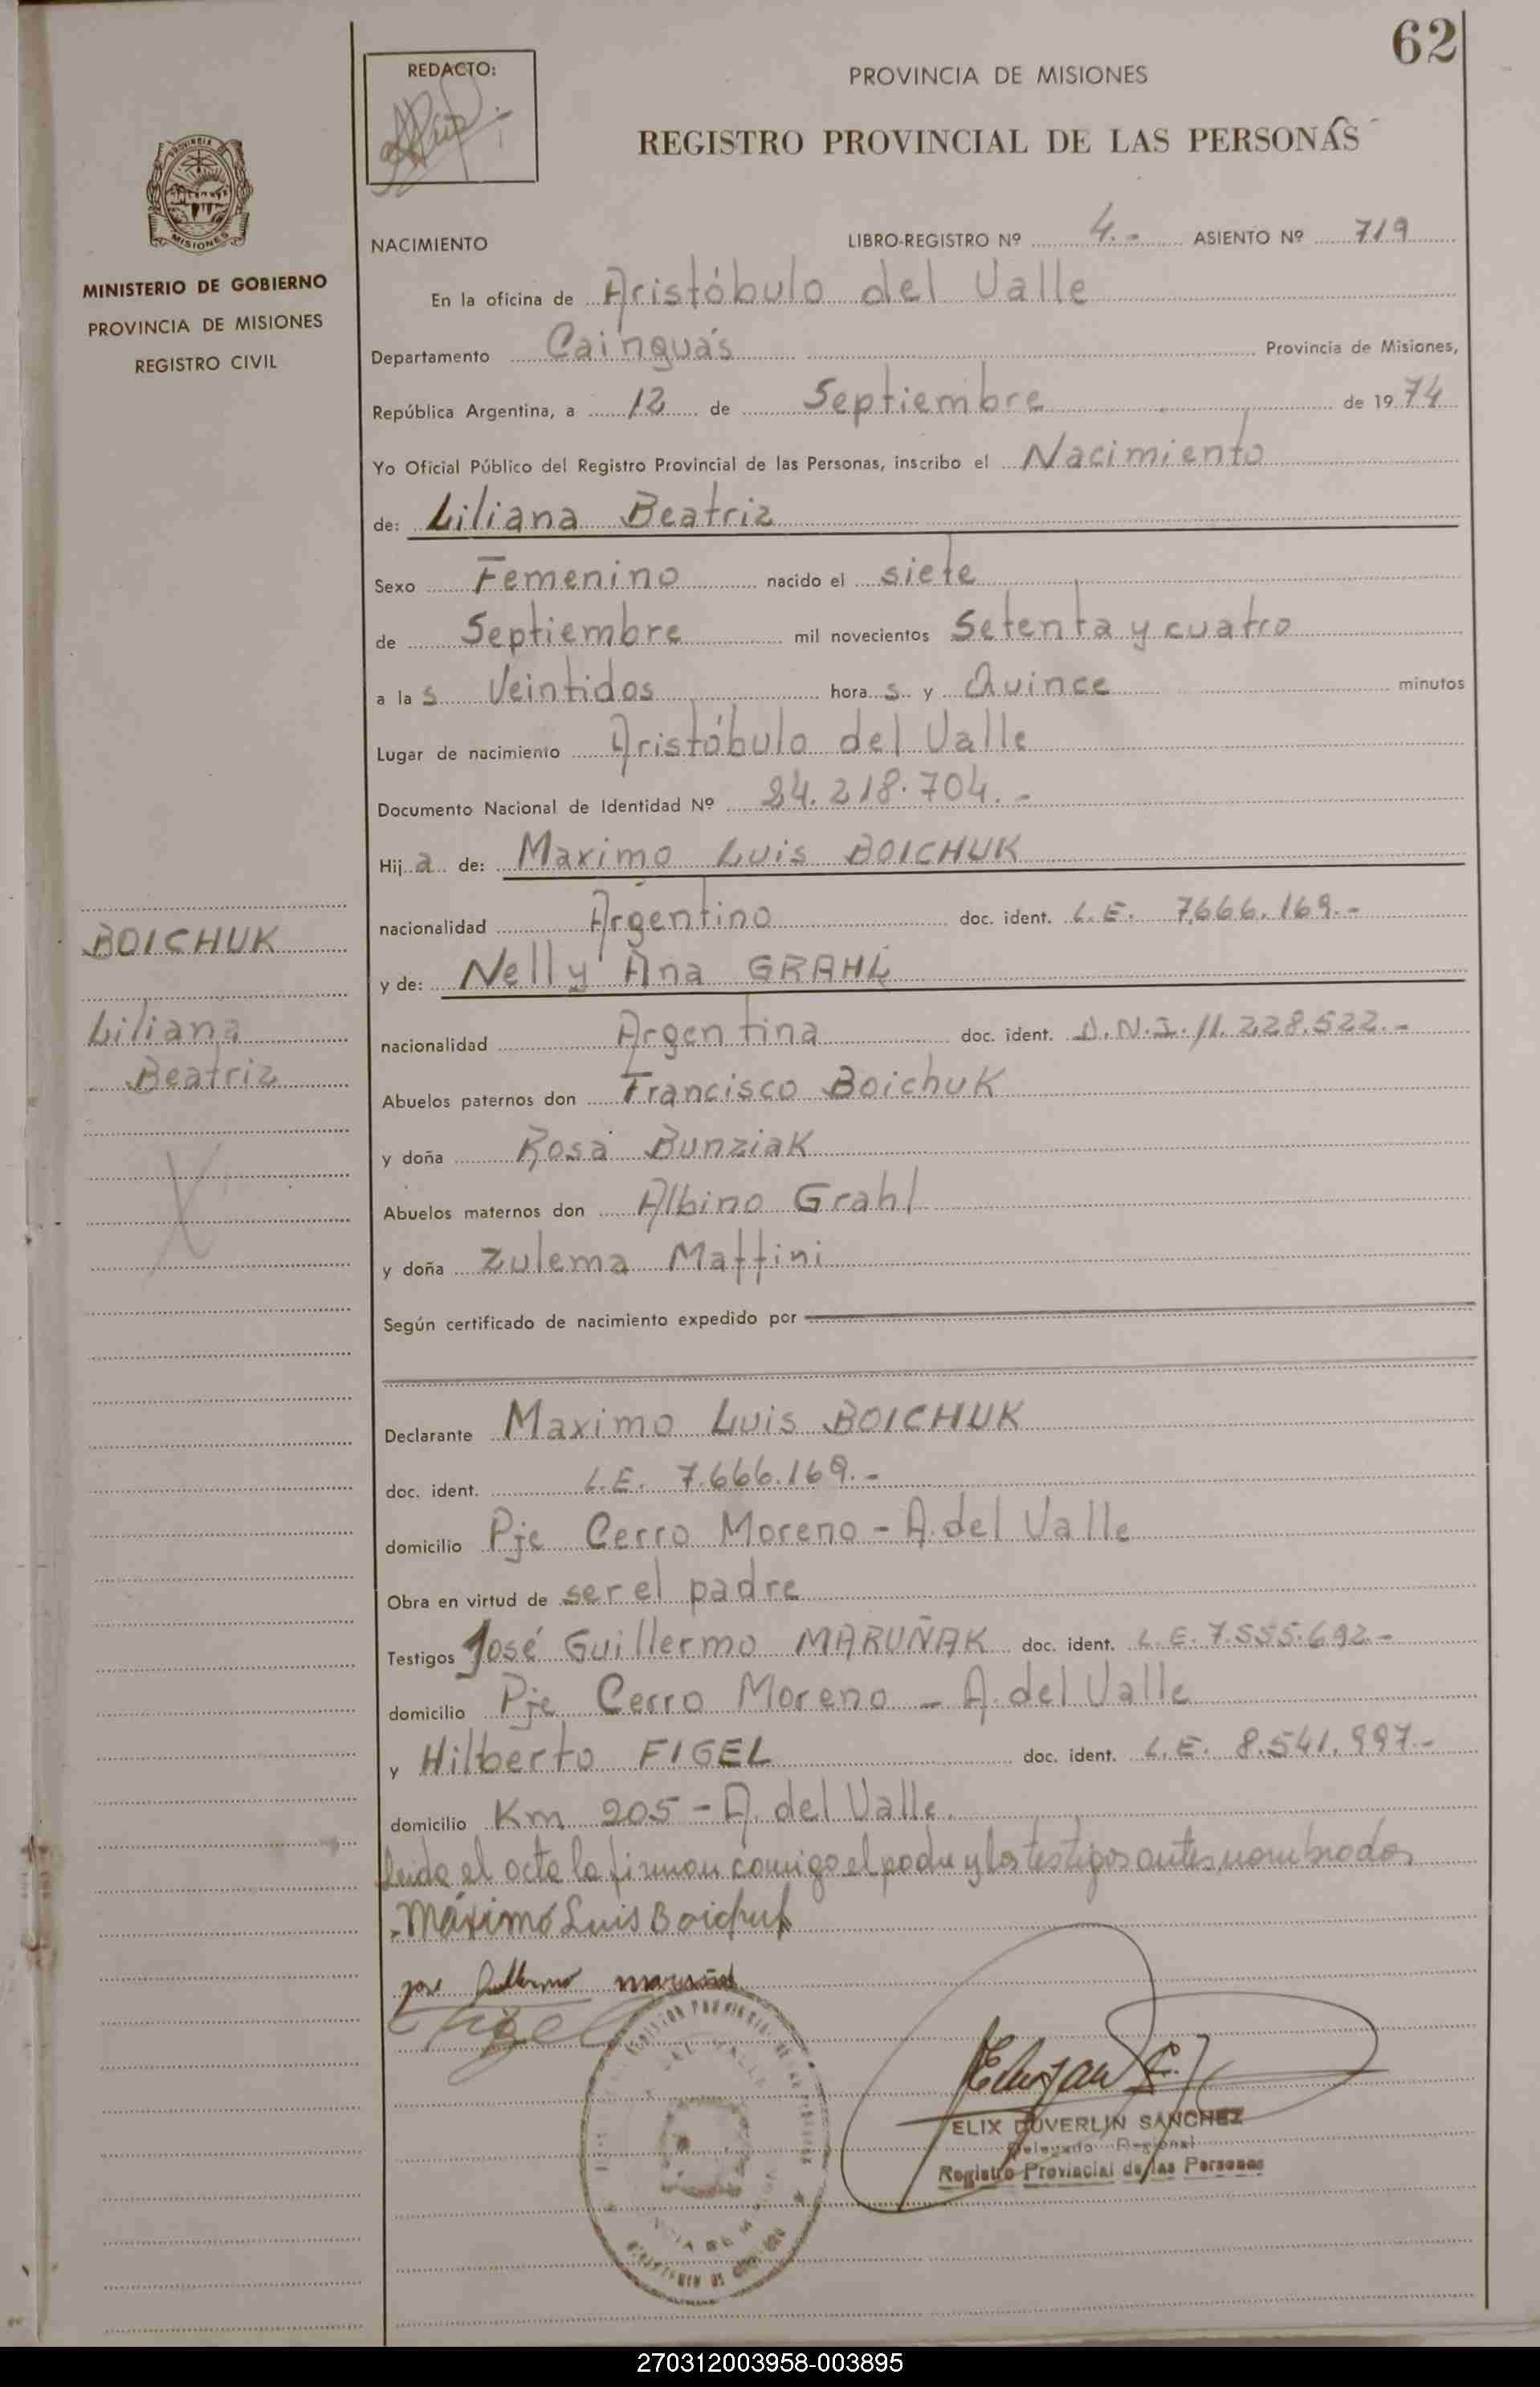 62
REDACTO:
PROVINCIA DE MISIONES
REGISTRO PROVINCIAL DE LAS PERSONAS
MISIONES
MINISTERIO DE GOBIERNO
PROVINCIA DE MISIONES
REGISTRO CIVIL
NACIMIENTO LIBRO-REGISTRO Nº 4.- ASIENTO Nº 719
En la oficina de Aristóbulo del Valle
Departamento Cainguás Provincia de Misiones,
República Argentina, a 12 de Septiembre de 1974
Yo Oficial Público del Registro Provincial de las Personas, inscribo el Nacimiento
de: Liliana Beatriz
Sexo Femenino nacido el siete
de Septiembre mil novecientos Setenta y cuatro
a las Veintidos horas y Quince minutos
Lugar de nacimiento Aristóbulo del Valle
Documento Nacional de Identidad Nº 24.218.704.-
Hija de: Maximo Luis BOICHUK
nacionalidad Argentino doc. ident. L.E. 7.666.169.-
y de: Nelly Ana GRAHL
nacionalidad Argentina doc. ident. D.N.I. 11.228.522.-
Abuelos paternos don Francisco Boichuk
y doña Rosa Bunziak
Abuelos maternos don Albino Grahl
y doña Zulema Mattini
Según certificado de nacimiento expedido por
Declarante Maximo Luis BOICHUK
doc. ident. L.E. 7.666.169.-
domicilio Pje Cerro Moreno - A. del Valle
Obra en virtud de ser el padre
Testigos José Guillermo MARUÑAK doc. ident. L.E. 7.555.692.-
domicilio Pje Cerro Moreno - A. del Valle
y Hilberto FIGEL doc. ident. L.E. 8.541.997.-
domicilio Km 205 - A. del Valle.
Leida el acta la firman comigo el padre y los testigos antes nombrados
Máximo Luis Boichuk
jose Guillermo maruñak
Figel
BOICHUK
Liliana
Beatriz
ELIX DUVERLIN SANCHEZ
Delegado Regional
Registro Provincial de las Personas
270312003958-003895